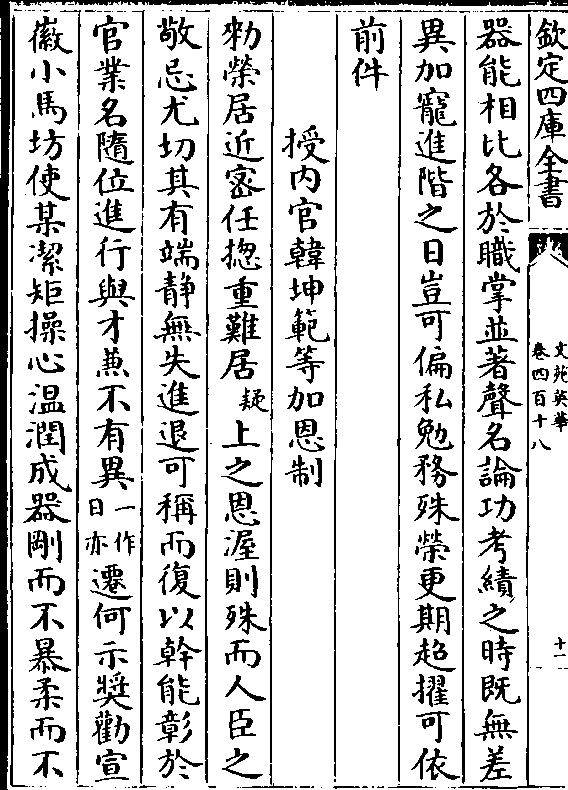 欽定四庫全書
文苑英華
卷四百十八
十一
器能相比各於職掌並著聲名論功考績之時既無差
異加寵進階之日豈可偏私勉務殊榮更期超擢可依
前件
授内官韓坤範等加恩制
勑榮居近密任揔重難居疑上之恩渥則殊而人臣之
敬忌尤切其有端静無失進退可稱而復以幹能彰於
官業名隨位進行與才兼不有異一作日亦遷何示奬勸宣
徽小馬坊使某潔矩操心温潤成器剛而不暴柔而不